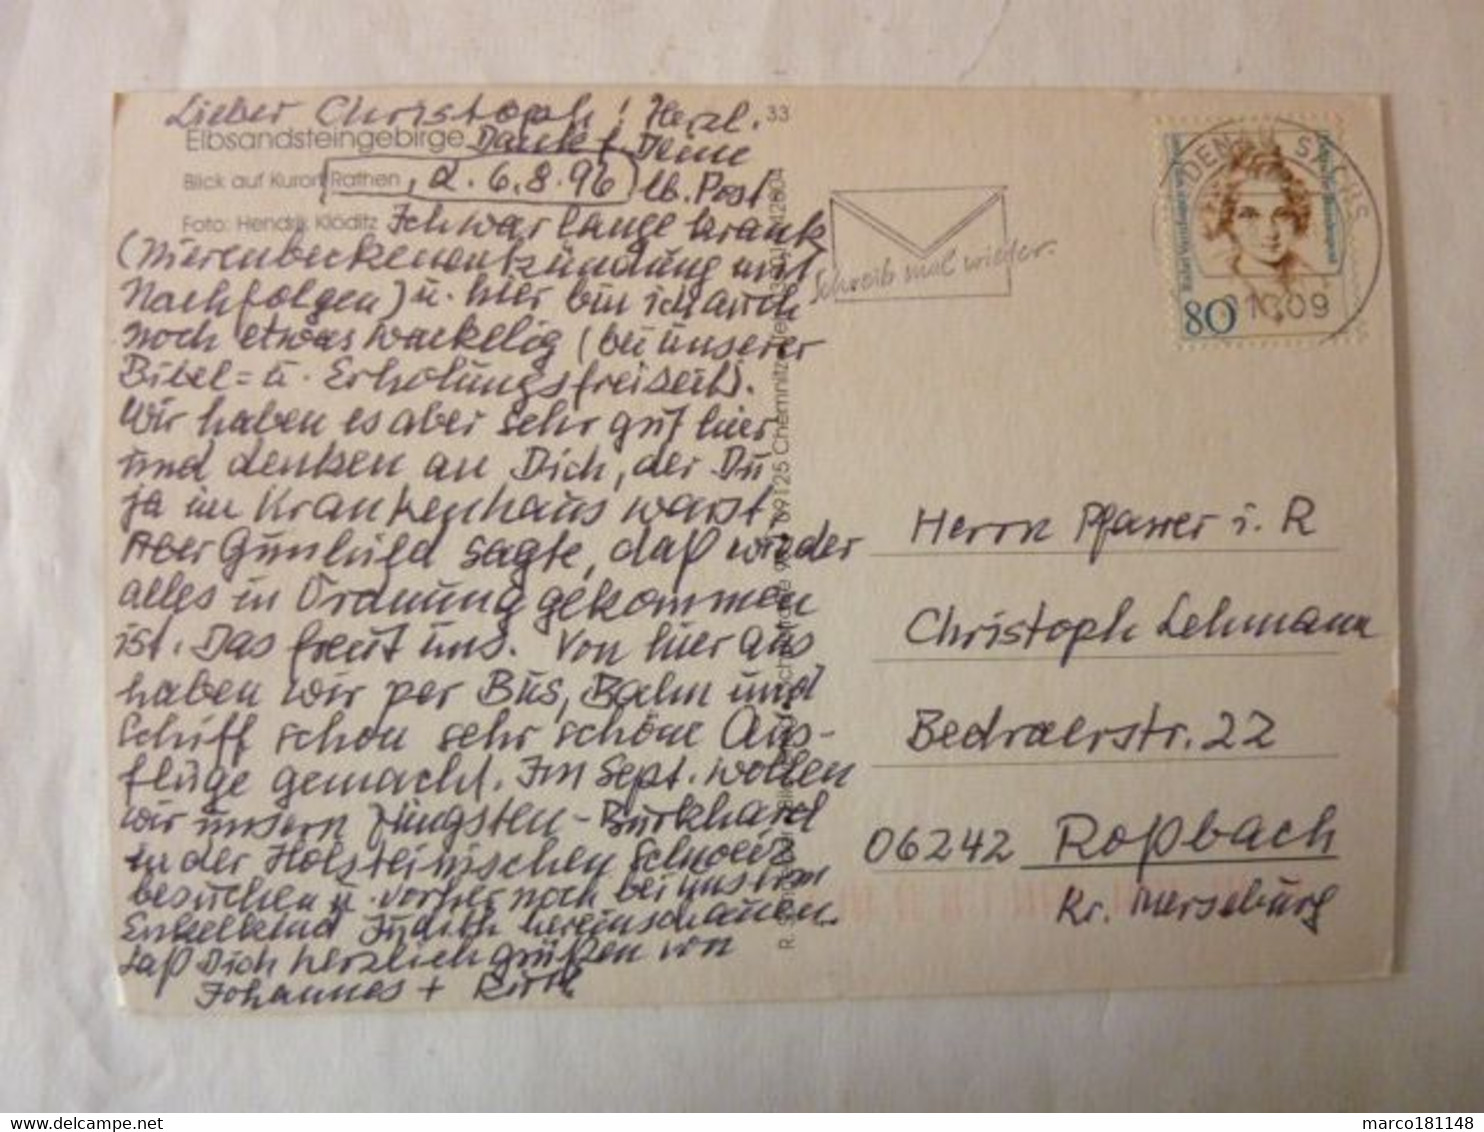 Lieber Christoph! Herzl.
33
Elbsandsteingebirge Dank f. Deine
Blick auf Kurort Rathen, d. 6.8.96 lb. Post
Foto: Hendrik Klöditz Ich war lange krank
(Nierenbeckenentzündung mit
Nachfolgen) u. hier bin ich auch
noch etwas wackelig (bei unserer
Bibel- u. Erholungsfreizeit).
Wir haben es aber sehr gut hier
und denken an Dich, der Du
ja im Krankenhaus warst.
Aber Gunhild sagte, daß wieder
alles in Ordnung gekommen
ist. Das freut uns. Von hier aus
haben wir per Bus, Bahn und
Schiff schon sehr schöne Aus-
flüge gemacht. Im Sept. wollen
wir unsern Jüngsten - Burkhard
in der Holsteinischen Schweiz
besuchen u. vorher noch bei uns
Enkelkind Judith hereinschauen.
Laß Dich herzlich grüßen von
Johannes + Ruth
09125 Chemnitz
Schreib mal wieder.
SACHS
1309
80
Herrn Pfarrer i. R
Christoph Lehmann
Bedraerstr. 22
06242 Roßbach
Kr. Merseburg
marco181148